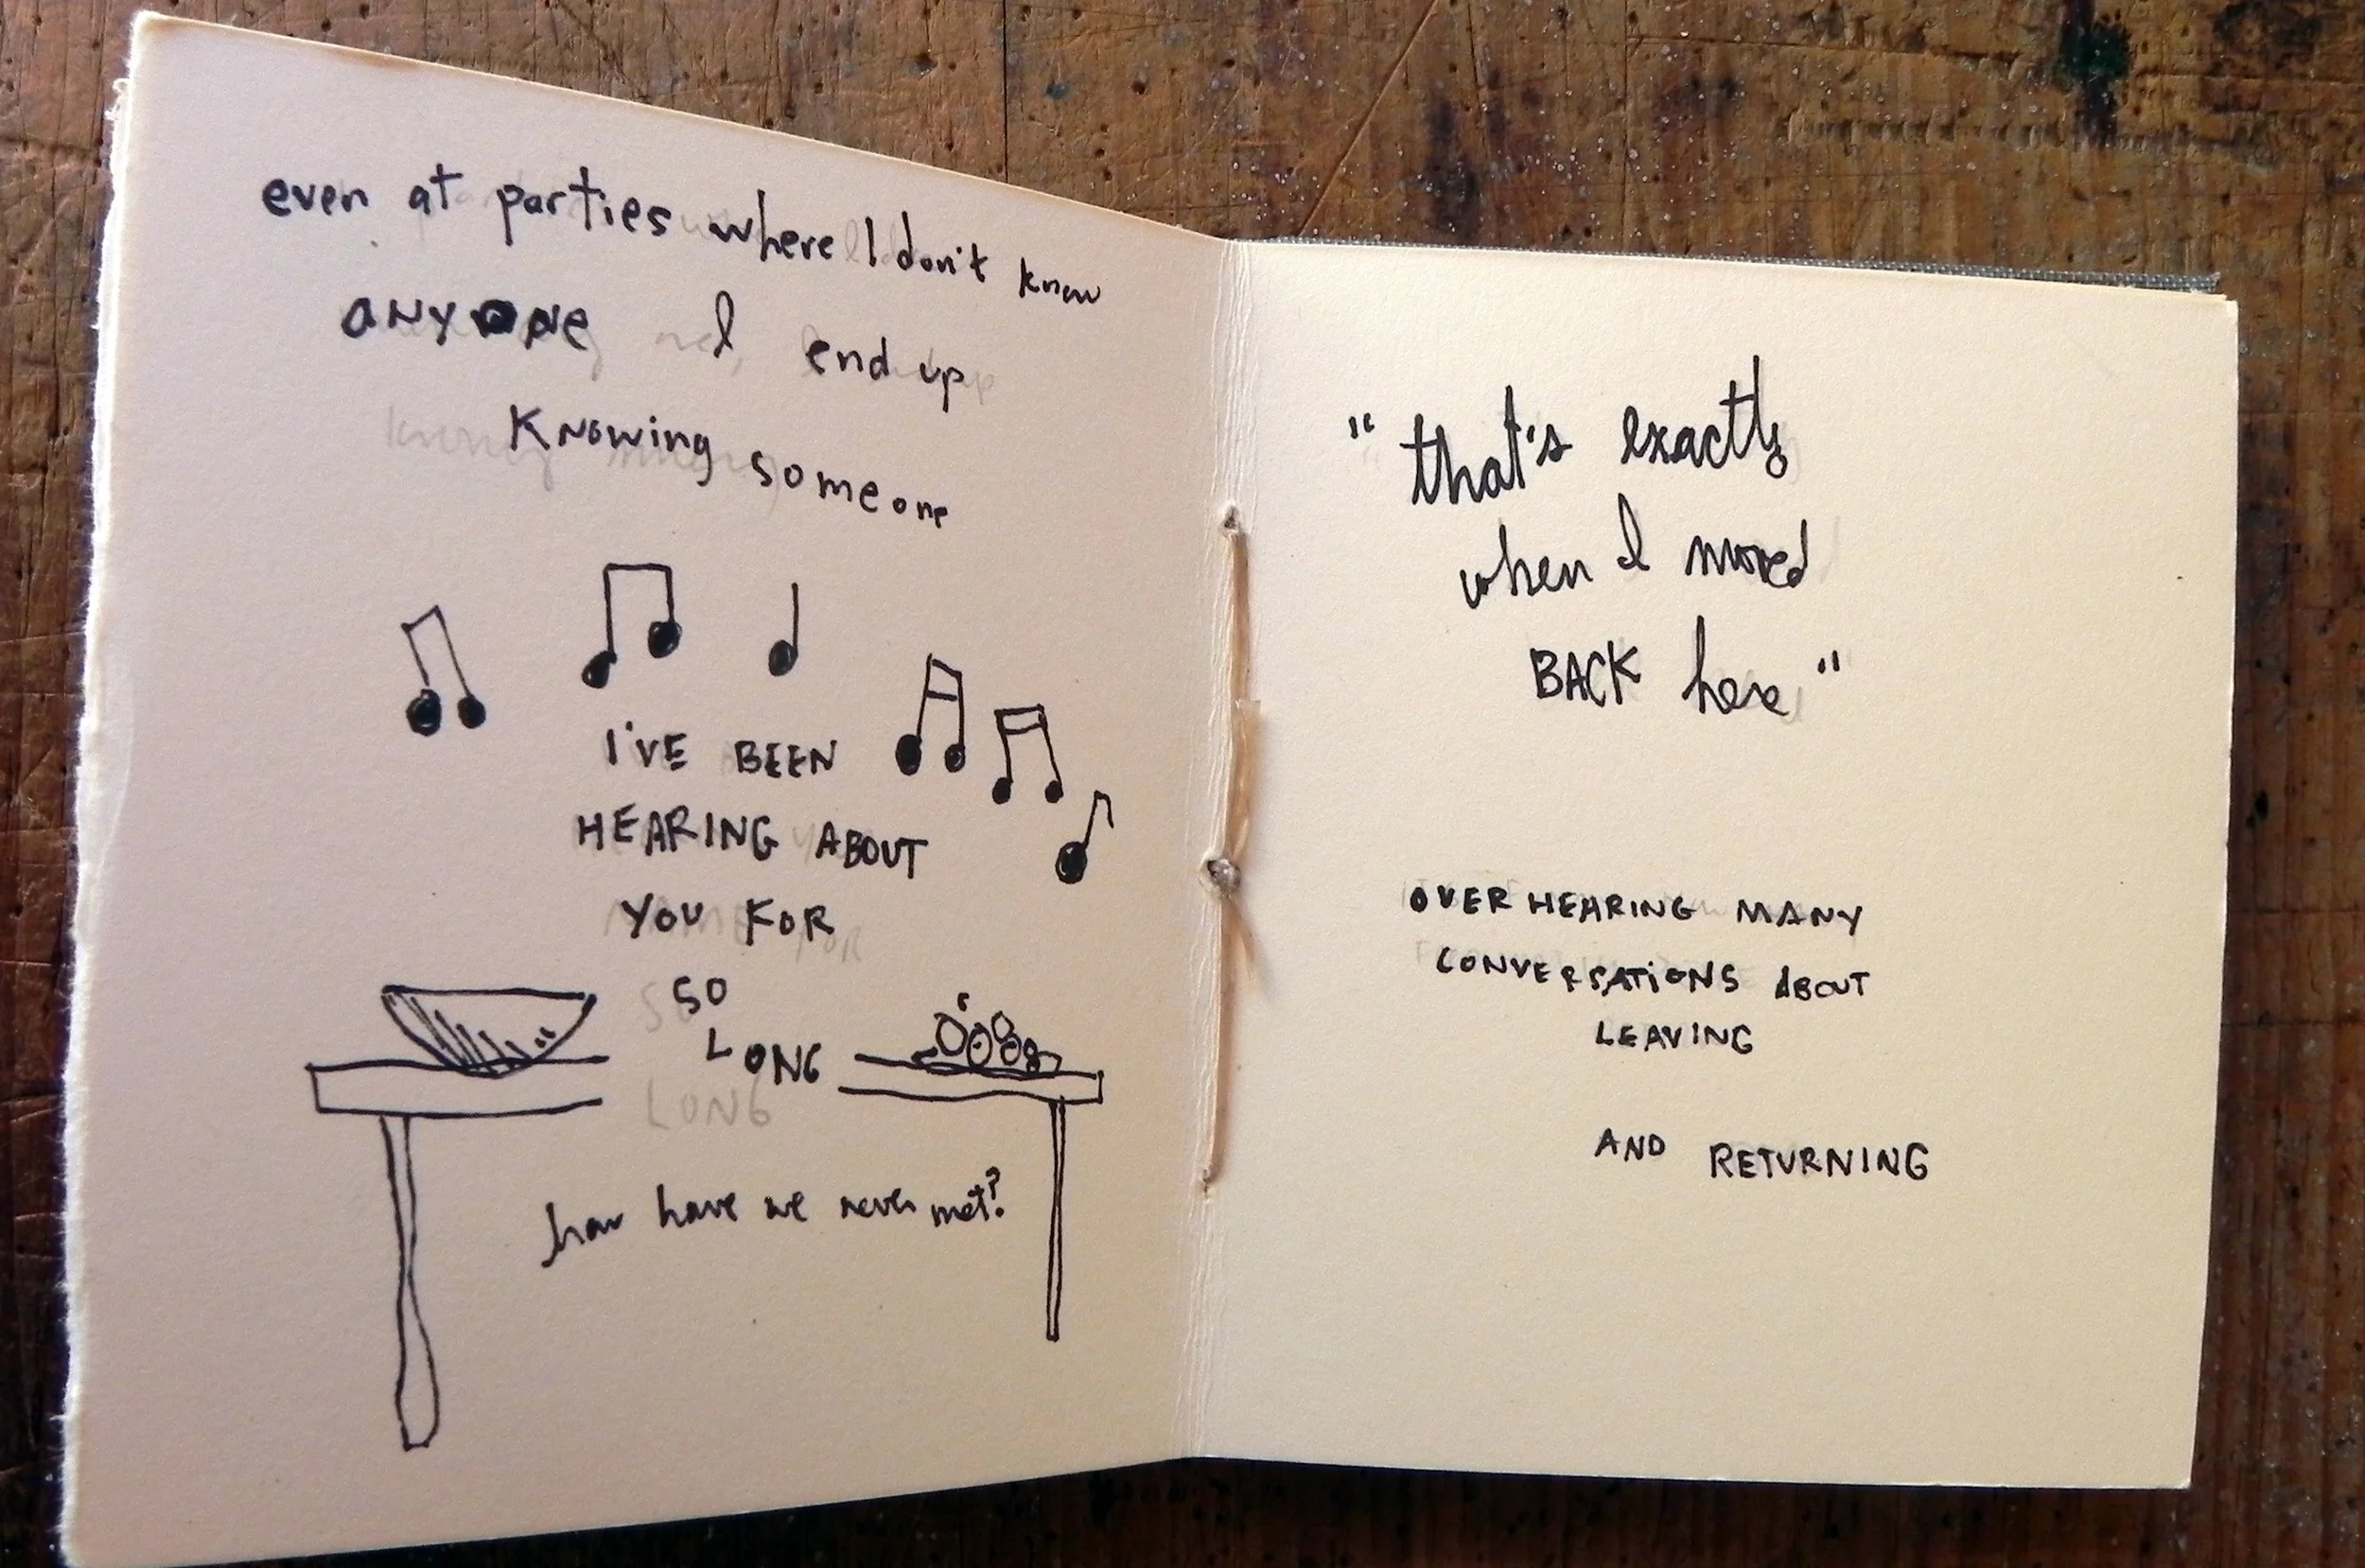 even at parties where I don't know
anyone I end up
Knowing someone
I'VE BEEN
HEARING ABOUT
YOU FOR
SO
LONG
how have we never met?
"that's exactly
when I moved
BACK here"
OVERHEARING MANY
CONVERSATIONS ABOUT
LEAVING
AND RETURNING